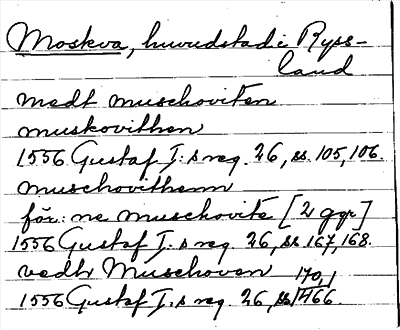 Moskva, huvudstad i Ryss-
land
medt muschoviten
muskovithen
1556 Gustaf I:s reg. 26, ss. 105, 106.
muschovithenn
för: ne muschovite [2 ggr]
1556 Gustaf I:s reg. 26, ss. 167, 168.
vedh Muschoven 170,1
1556 Gustaf I:s reg. 26, ss. 466.